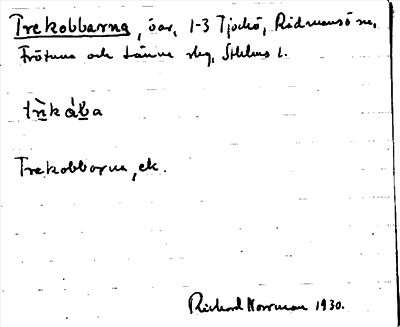 Trekobbarna, öar, 1-3 Tjockö, Rådmansö sn,
Frötuna och Länna skg, Sthlms l.
trìkàba
Trekobborna, ek.
Rickard Norrman 1930.